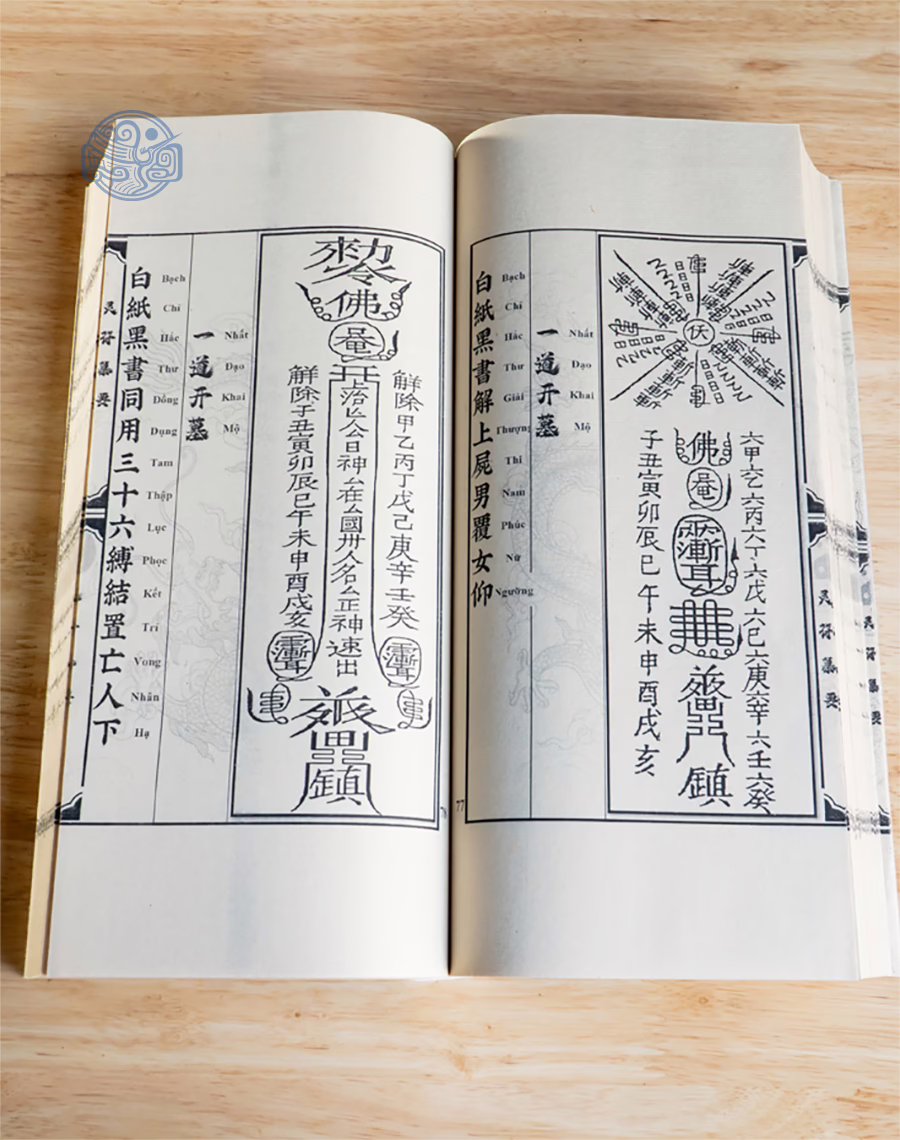 佛
解除甲乙丙丁戊己庚辛壬癸
神
在
國
人名
正神速出
解除子丑寅卯辰巳午未申酉戌亥
鎮
一道开墓
Nhất Đạo Khai Mộ
白紙黑書同用三十六縛結置亡人下
Bạch Chỉ Hắc Thư Đồng Dụng Tam Thập Lục Phọc Kết Trí Vong Nhân Hạ
灵符集要
伏
六甲六乙六丙六丁六戊六己六庚六辛六壬六癸
佛
鎮
子丑寅卯辰巳午未申酉戌亥
一道开墓
Nhất Đạo Khai Mộ
白紙黑書解上屍男覆女仰
Bạch Chỉ Hắc Thư Giải Thượng Thi Nam Phúc Nữ Ngưỡng
77
灵符集要